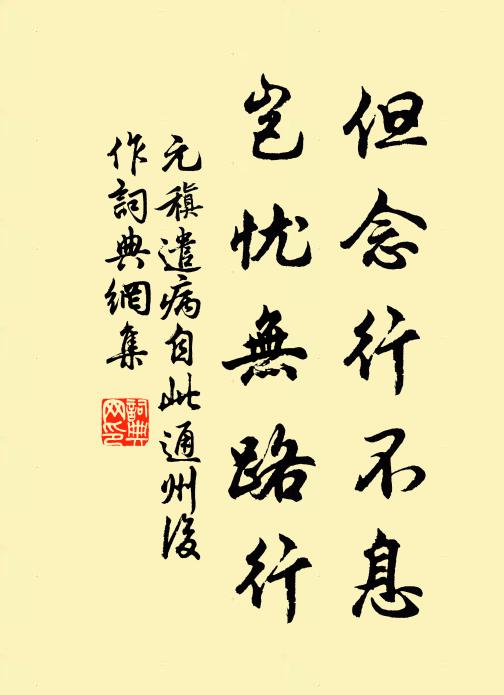 但念行不息
岂忧無路行
元稹遣病自此通州後
作詞典網集
詞典
网印